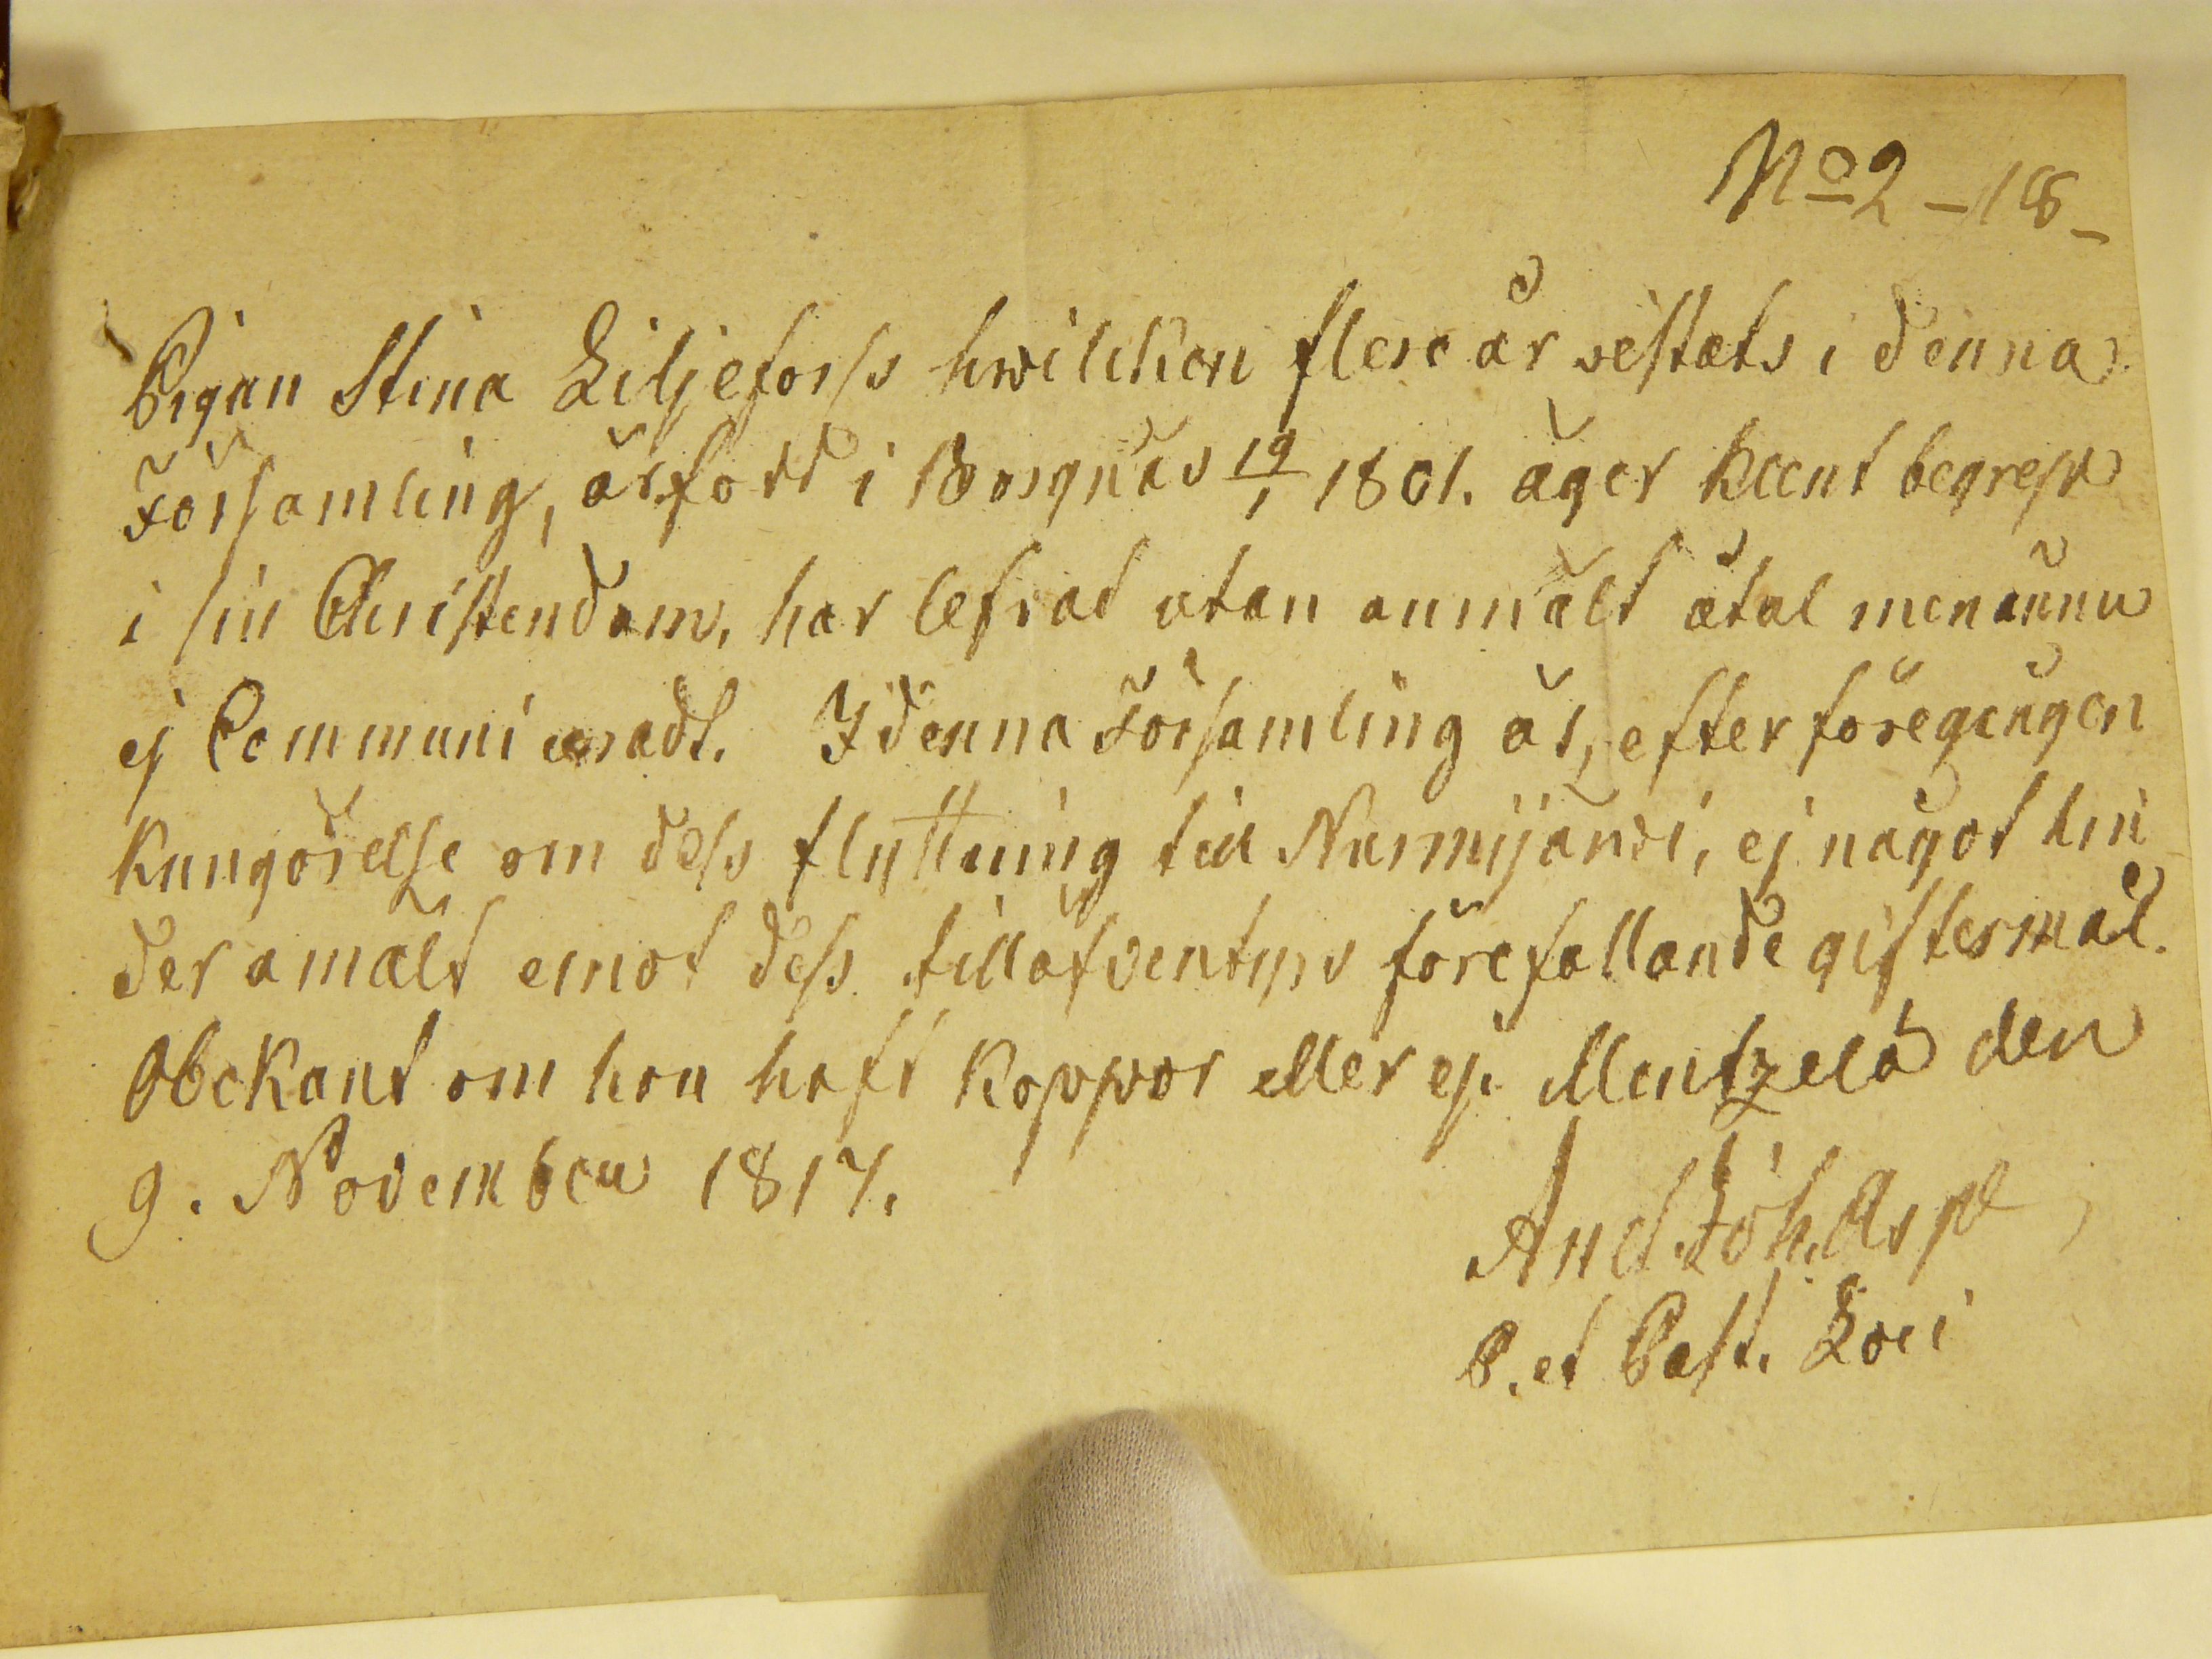 No 2 – 18 –
Pigan Stina Liljeforss hwilcken flere år vistats i denna
Församling, är född i Borgnäs 19/1 1801. äger klent begrep
i sin Christendom, har lefvat utan anmält åtal men ännu
ej Communiceradt. I denna Församling är, efter föregången
kungörelse om dess flyttning till Nurmijärvi, ej något hin
der amält emot dess till äfventyrs förefallande giftermål.
Obekant om hon haft koppor eller ej. Mentzelä den
9. November 1817.
And. Joh. Asp
P. et Past. Loci